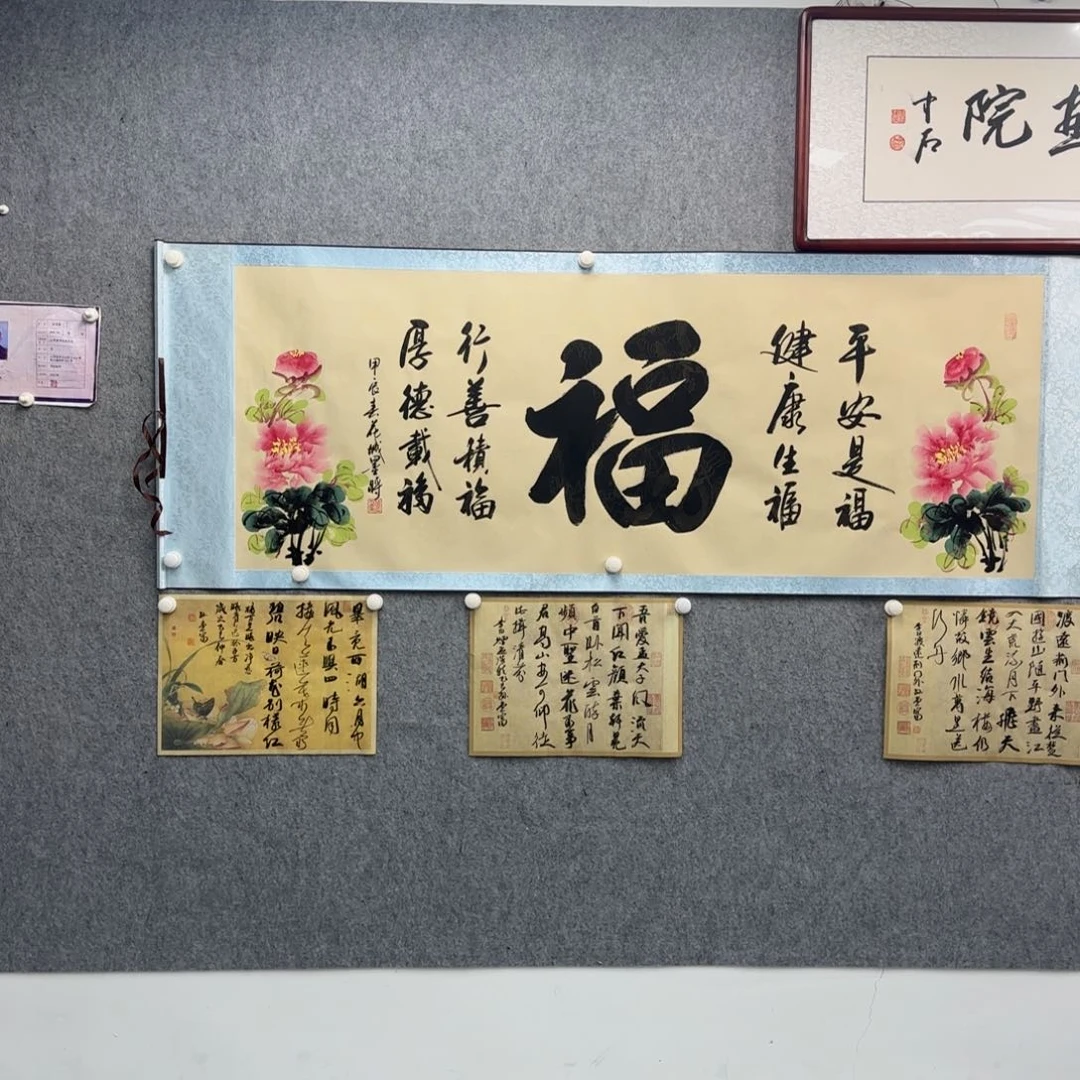 畫院
中石
平安是福
健康生福
福
行善積福
厚德載福
甲辰春花城
畢竟西湖六月中
風光不與四時同
接天蓮葉無窮
碧映日荷花別樣紅
吾愛孟夫子風流天
下聞紅顏棄軒冕
白首卧松雲醉月
頻中聖迷花不事
君高山安可仰徒
此揖清芬
渡遠荊門外來從楚
國遊山隨平野盡江
入大荒流月下飛天
鏡雲生結海樓仍
憐故鄉水萬里送
行舟